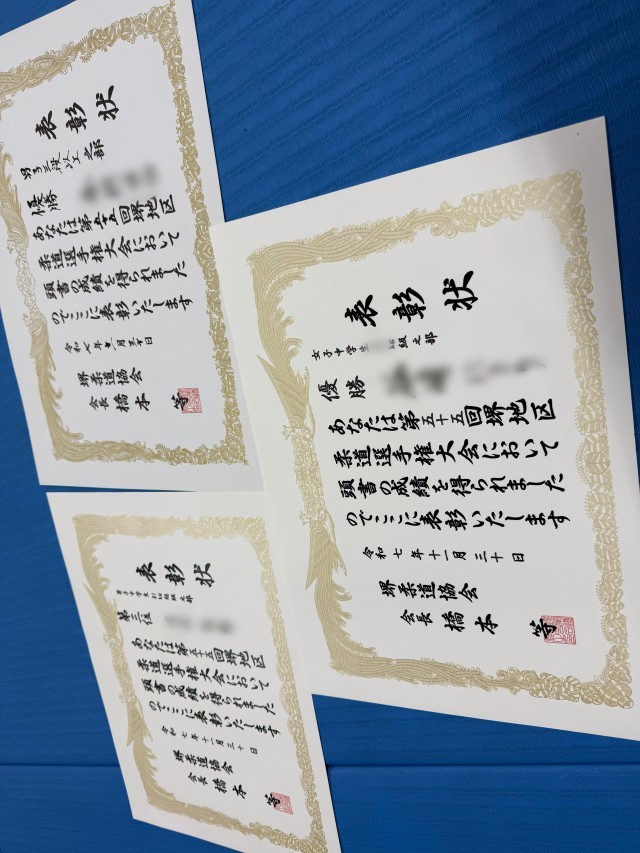 表彰状
男子三段以上之部
優勝
あなたは第五十五回堺地区
柔道選手権大会において
頭書の成績を得られました
のでここに表彰いたします
令和七年十一月三十日
堺柔道協会
会長 橋本 等
表彰状
女子中学生 級之部
優勝
あなたは第五十五回堺地区
柔道選手権大会において
頭書の成績を得られました
のでここに表彰いたします
令和七年十一月三十日
堺柔道協会
会長 橋本 等
表彰状
男子中学生 級之部
第三位
あなたは第五十五回堺地区
柔道選手権大会において
頭書の成績を得られました
のでここに表彰いたします
令和七年十一月三十日
堺柔道協会
会長 橋本 等